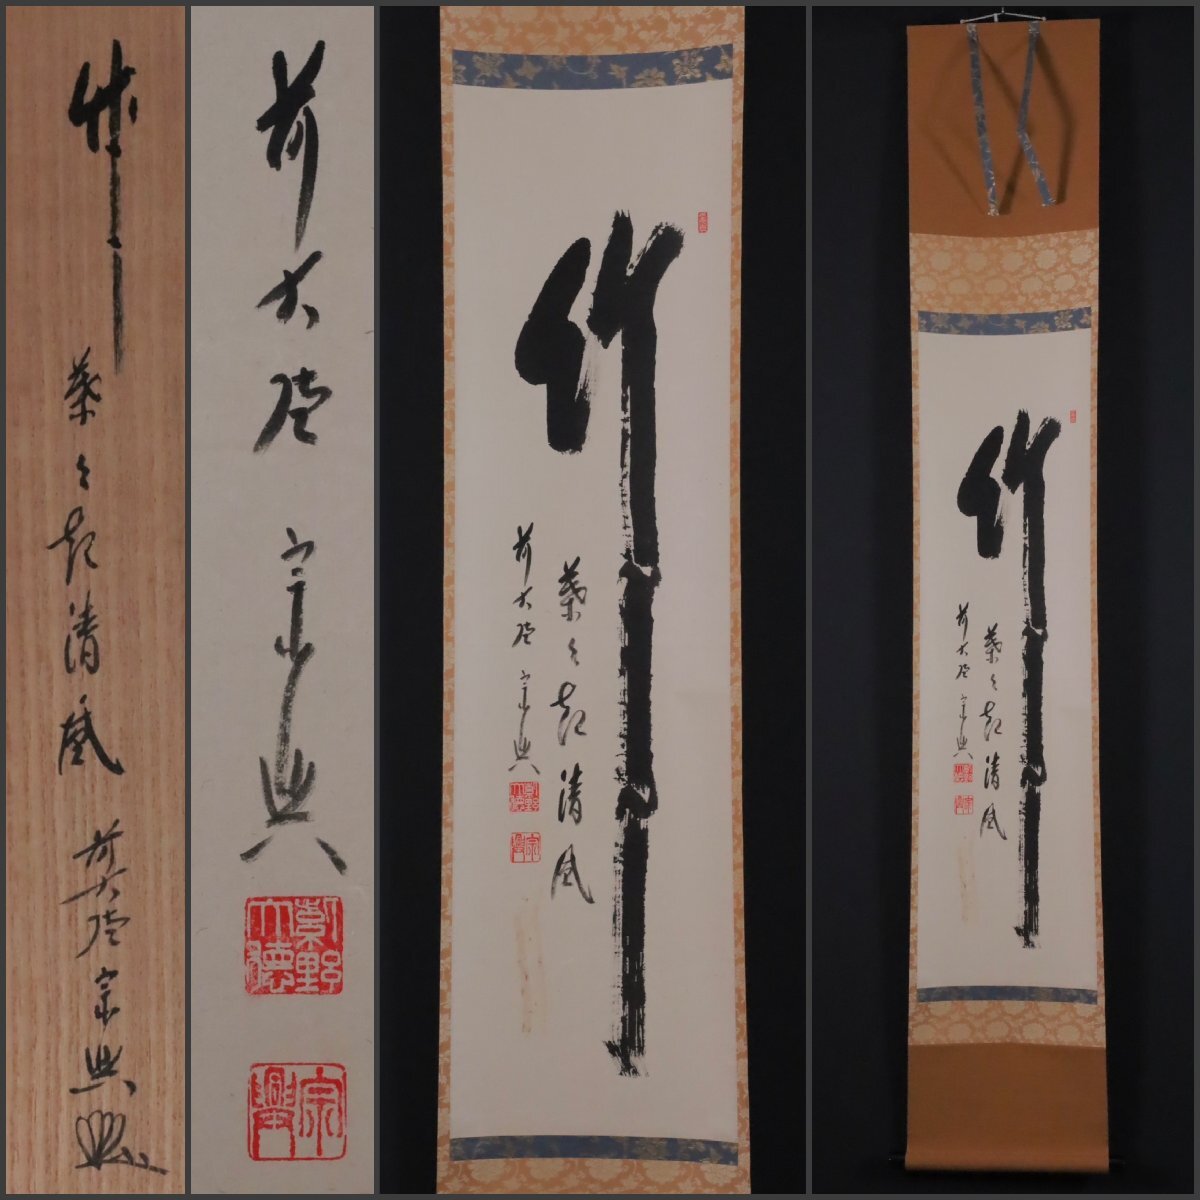 竹
葉々起清風
前大徳宗興
前大徳 宗興
紫野
大徳
宗興
竹
葉々起清風
前大徳 宗興
紫野
大徳
宗興
竹
葉々起清風
前大徳 宗興